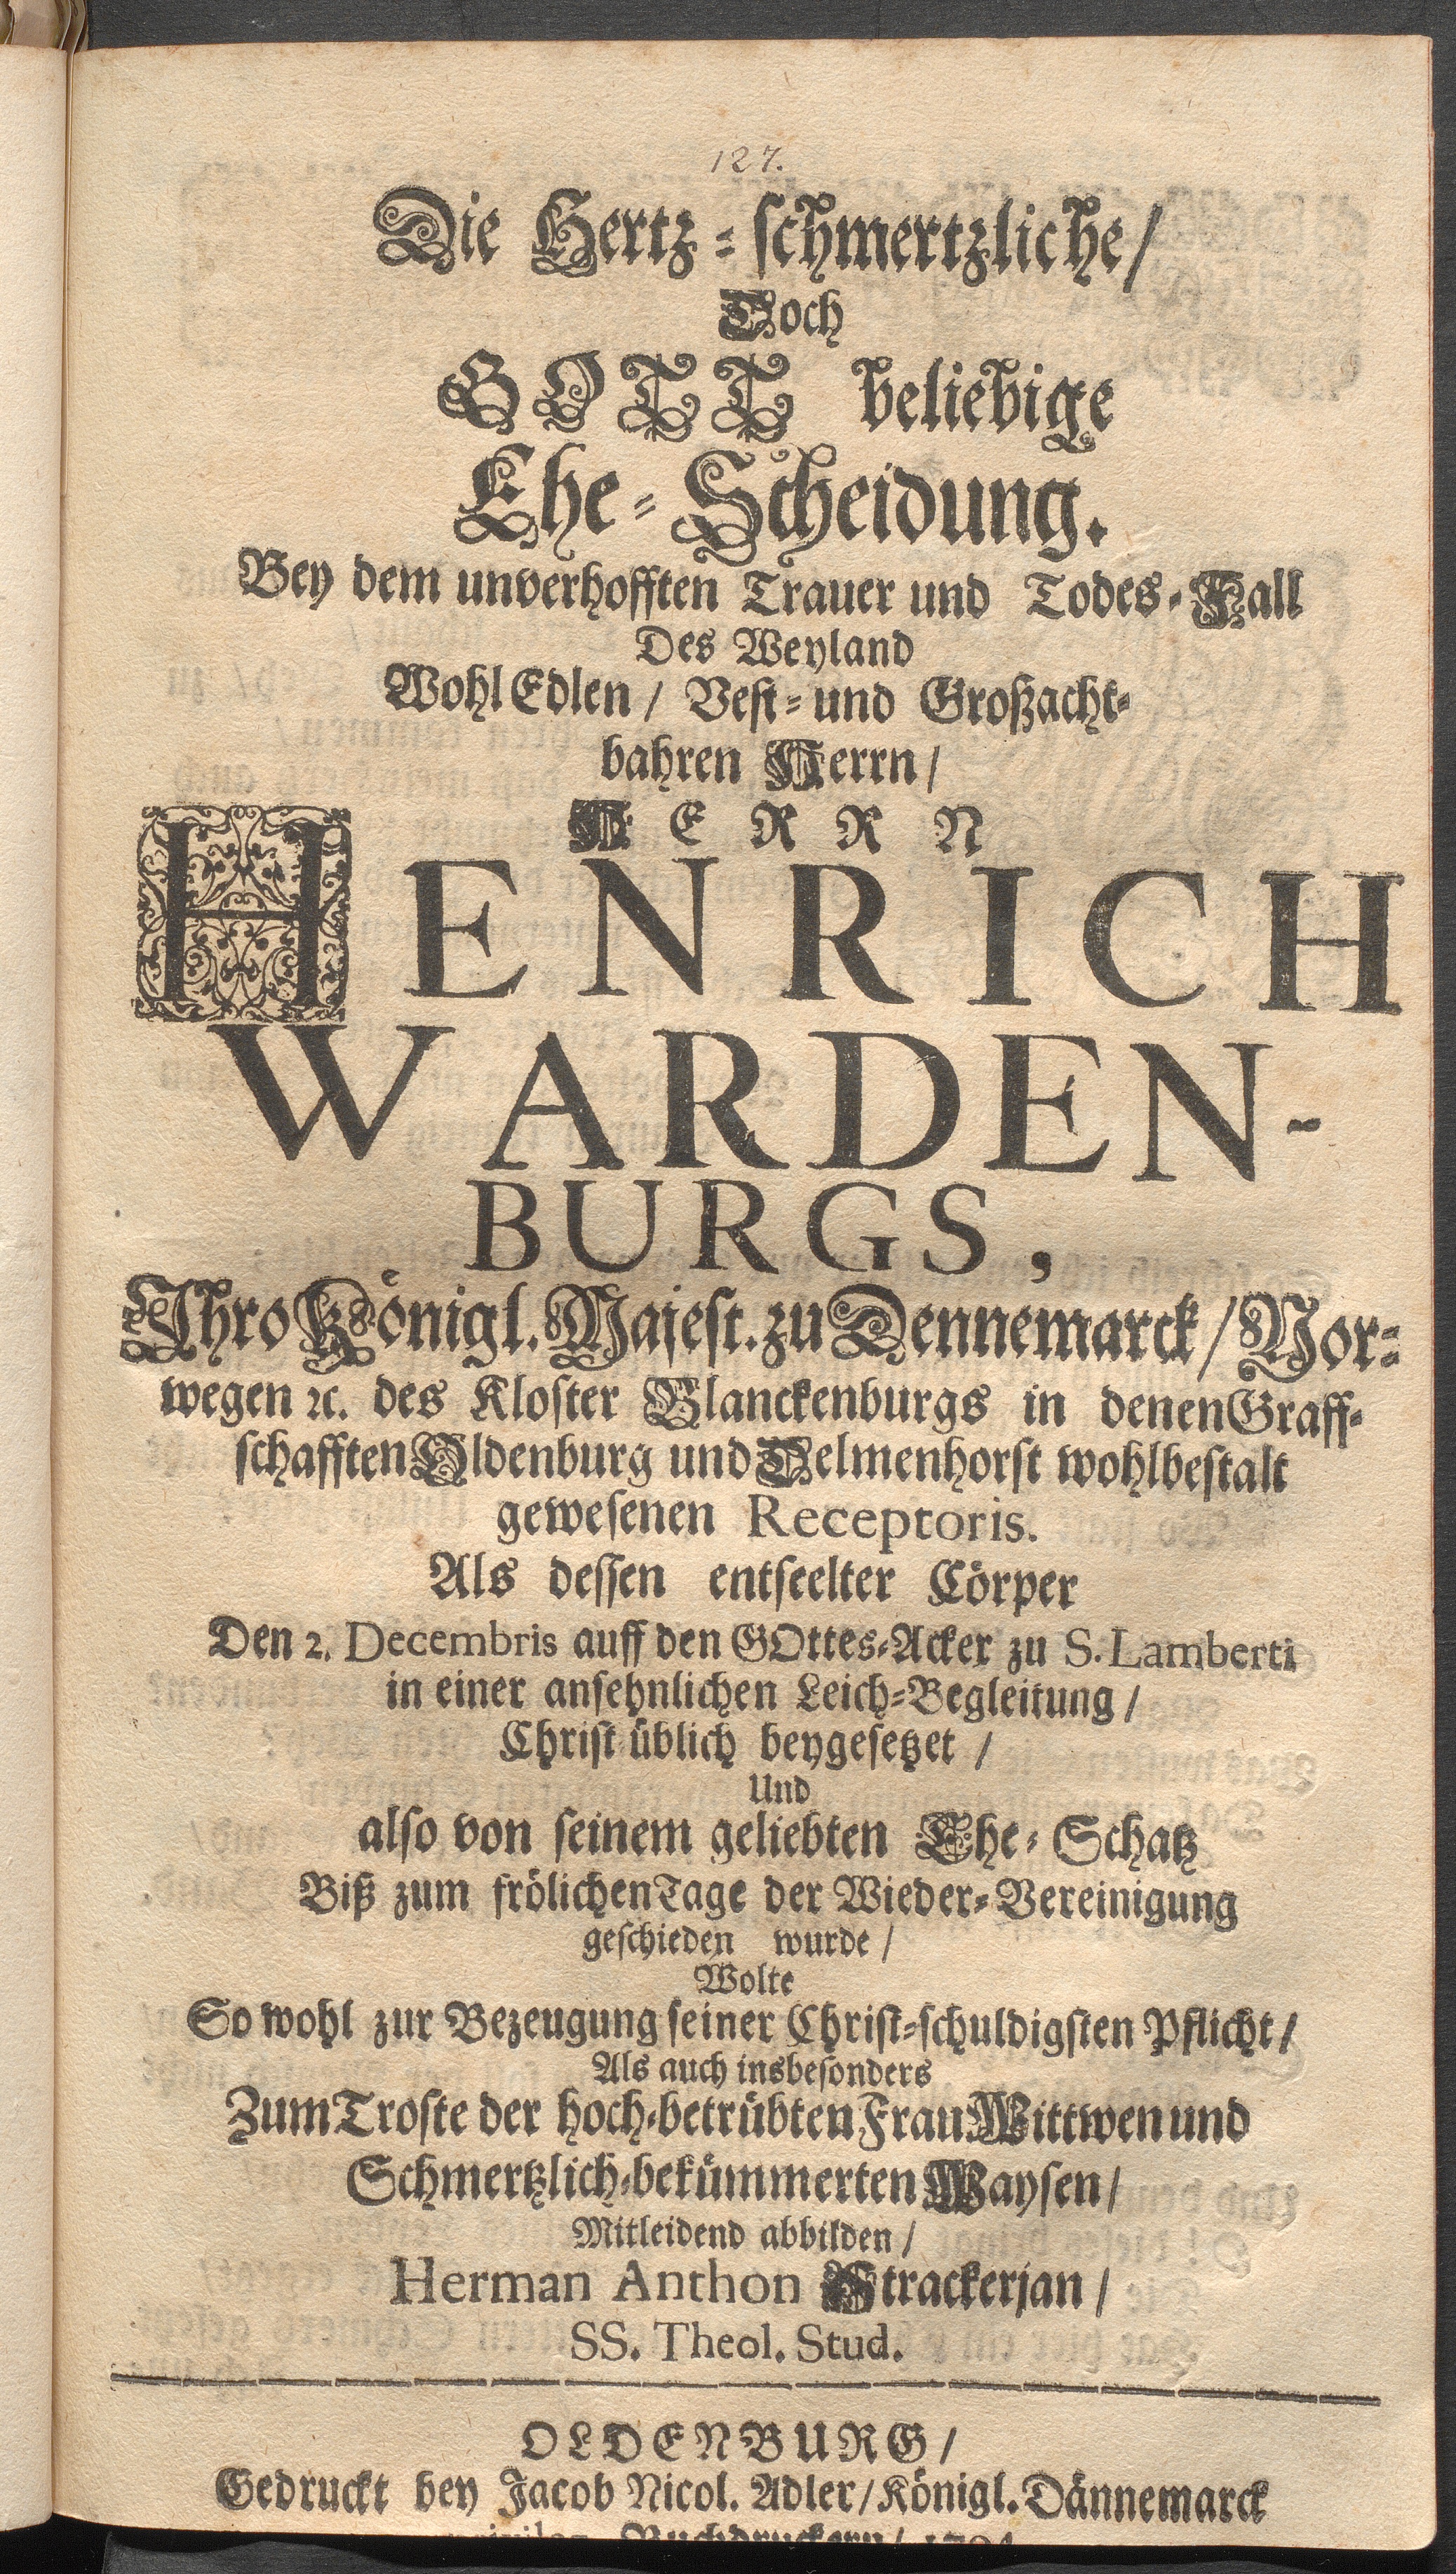 127.
Die Hertz-schmertzliche/
Doch
GOTT beliebige
Ehe-Scheidung.
Bey dem unverhofften Trauer und Todes-Fall
Des Weyland
WohlEdlen / Vest- und Großacht-
bahren Herrn /
HERRN
HENRICH
WARDEN-
BURGS,
Ihro Königl. Majest. zu Dennemarck / Nor-
wegen ꝛc. des Kloster Blanckenburgs in denen Graff-
schafften Oldenburg und Delmenhorst wohlbestalt
gewesenen Receptoris.
Als dessen entseelter Cörper
Den 2. Decembris auff den GOttes-Acker zu S. Lamberti
in einer ansehnlichen Leich-Begleitung /
Christ üblich beygesetzet /
Und
also von seinem geliebten Ehe-Schatz
Biß zum frölichen Tage der Wieder-Vereinigung
geschieden wurde /
Wolte
So wohl zur Bezeugung seiner Christ-schuldigsten Pflicht /
Als auch insbesonders
Zum Troste der hoch-betrübten Frau Wittwen und
Schmertzlich-bekümmerten Waysen /
Mitleidend abbilden /
Herman Anthon Strackerjan /
SS. Theol. Stud.
OLDENBURG /
Gedruckt bey Jacob Nicol. Adler / Königl. Dännemarck
Buchdruckern /